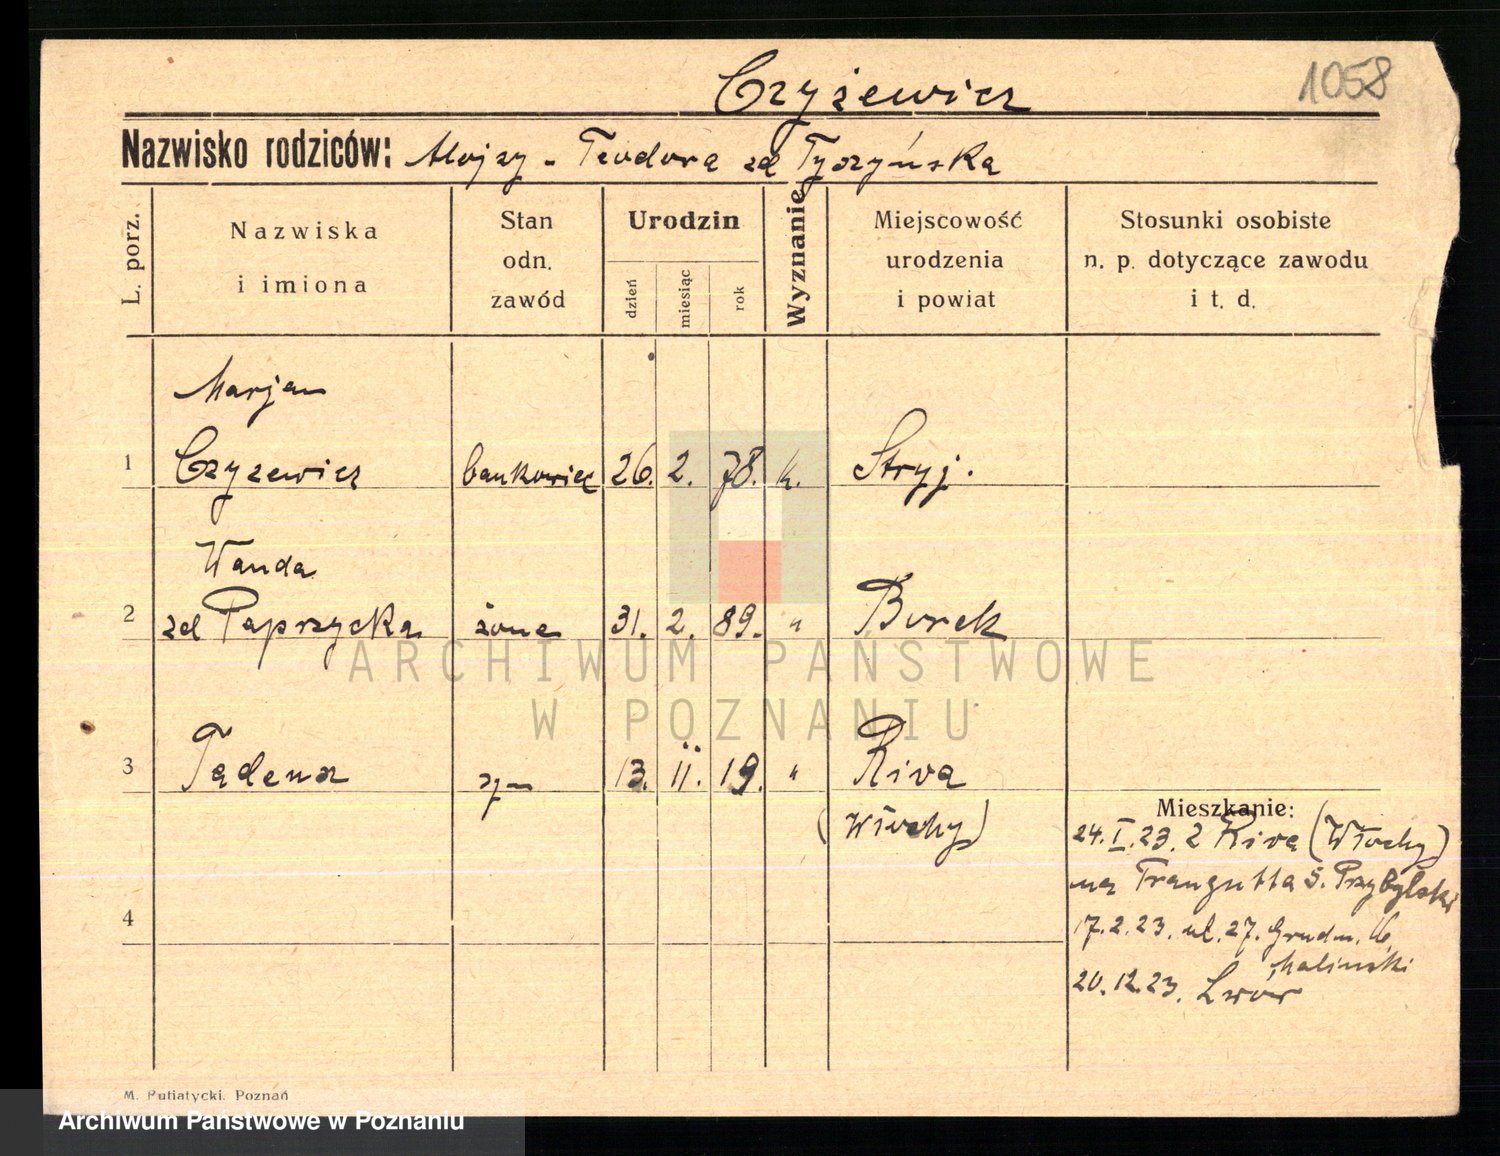 1058
Czyżewicz
Nazwisko rodziców: Alojzy - Teodora zd Tyszyńska
L. porz.
Nazwiska
i imiona
Stan
odn.
zawód
Urodzin
dzień
miesiąc
rok
Wyznanie
Miejscowość
urodzenia
i powiat
Stosunki osobiste
n. p. dotyczące zawodu
i t. d.
Marjan
1 Czyzewicz bankowiec 26. 2. 78. k. Stryj.
Wanda
2 zd Paprzycka żona 31. 2. 89. " Borek
3 Tadeusz syn 13. II. 19. " Riva
(Włochy)
Mieszkanie:
24.I.23. z Riva (Włochy)
na Traugutta 5. Przybylski
4
17.2.23. ul. 27. Grudn. 16.
Maliński
20.12.23. Lwów
ARCHIWUM PAŃSTWOWE
W POZNANIU
M. Putiatycki. Poznań
Archiwum Państwowe w Poznaniu